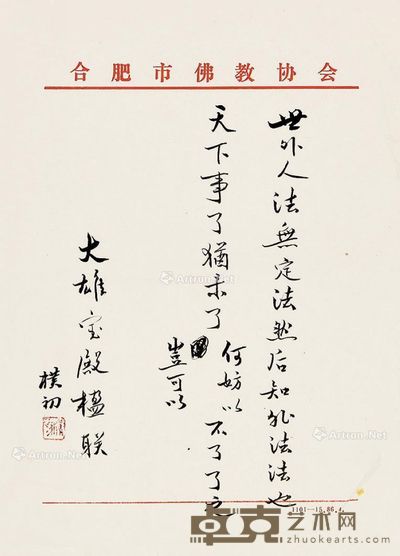 合肥市佛教协会
世外人法無定法然后知非法法也
天下事了猶未了何妨以不了了之
豈可以
大雄宝殿楹联
樸初
1101—15.86.4
Artron.Net
Artron.Net
Artron.Net
Artron.Net
卓克艺术网
zhuokearts.com